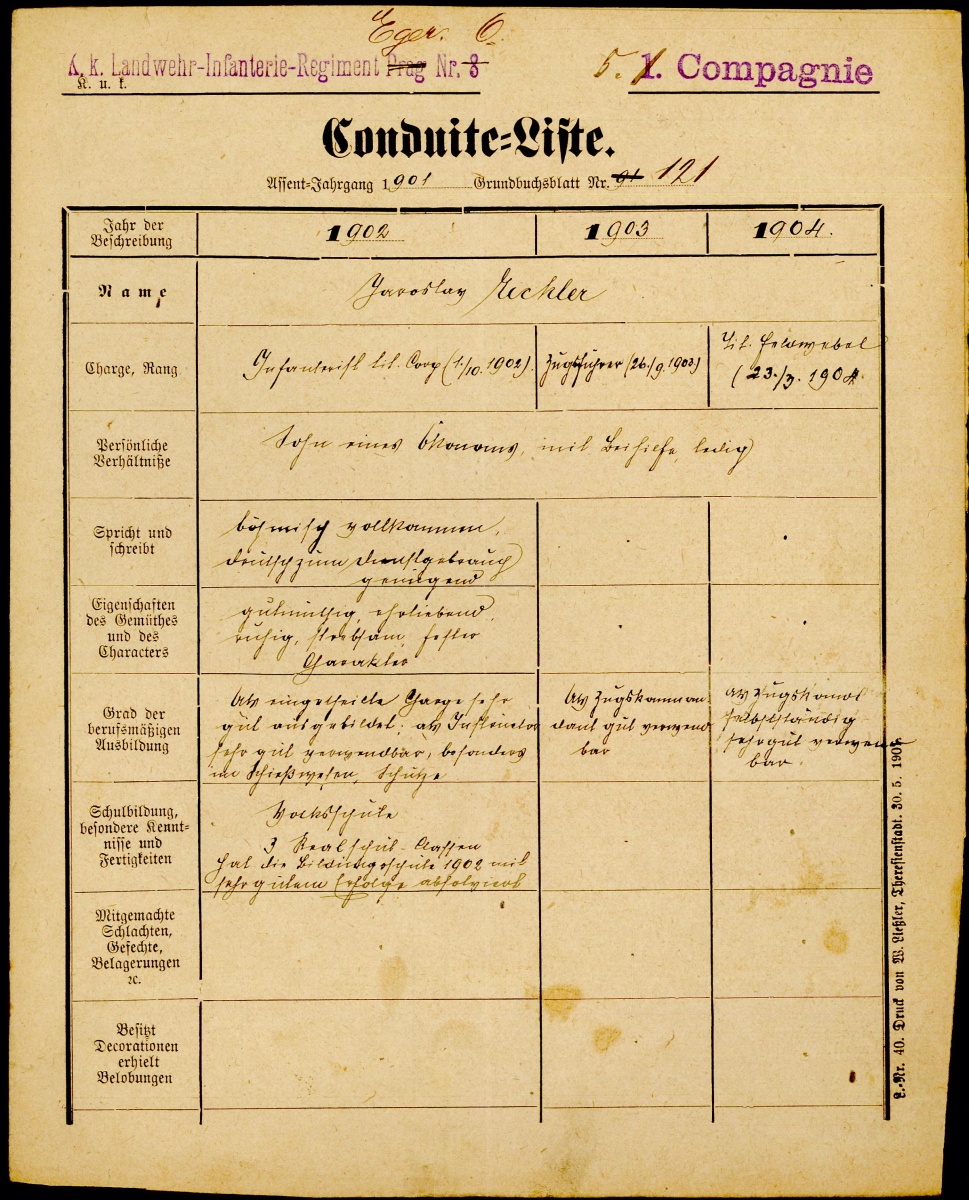 Eger. 6.
K. k. Landwehr-Infanterie-Regiment Prag Nr. 8
K. u. k.
5. 1. Compagnie
Conduite-Liste.
Assent-Jahrgang 1901 Grundbuchsblatt Nr. 91 121
Jahr der
Beschreibung
1902
1903
1904.
Name
Jaroslav
Charge, Rang
Infanterist tit. Corp (1./10. 1902).
Zugsführer (26./9. 1903)
Tit. Feldwebel
(23./3. 1904.
Persönliche
Verhältniße
Sohn eines Ökonoms, mit Beihilfe, ledig
Spricht und
schreibt
böhmisch vollkommen,
deutsch zum Dienstgebrauch
genügend
Eigenschaften
des Gemüthes
und des
Characters
gutmüthig, ehrliebend,
ruhig, strebsam, fester
Charakter
Grad der
berufsmäßigen
Ausbildung
Als eingetheilte Charge sehr
gut ausgebildet; als Instructor
sehr gut verwendbar, besonders
im Schießwesen, Schütze
Als Zugskomman-
dant gut verwend
bar
als Zugskomdt
selbstständig
sehr gut verwend
bar.
Schulbildung,
besondere Kennt-
nisse und
Fertigkeiten
Volksschule
3 Realschul-Classen
hat die Bildungsschule 1902 mit
sehr gutem Erfolge absolviert
Mitgemachte
Schlachten,
Gefechte,
Belagerungen
ꝛc.
Besitzt
Decorationen
erhielt
Belobungen
L.-Nr. 40. Druck von W. Ließler, Theresienstadt. 30. 5. 1901.